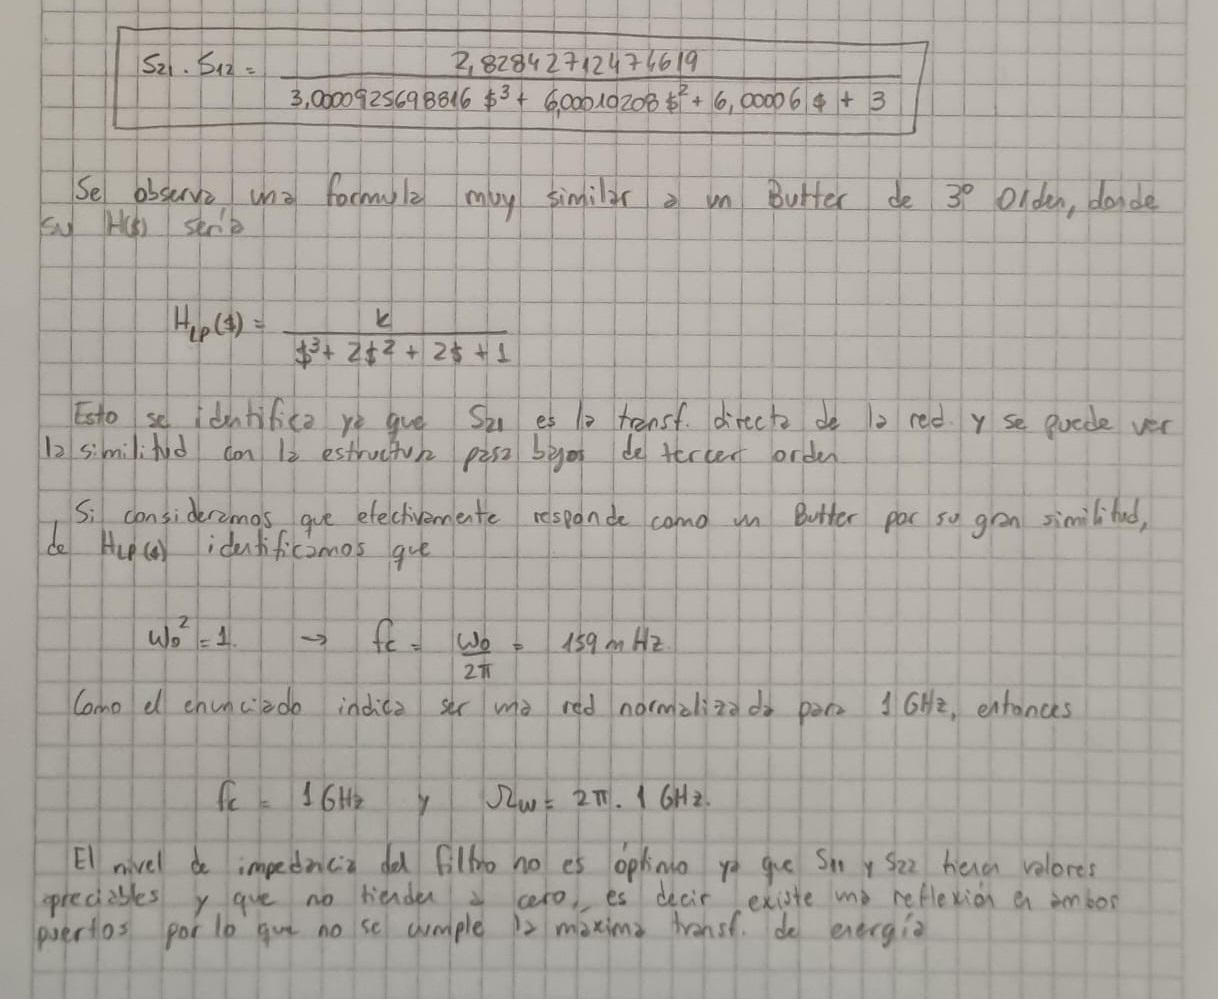 S21 . S12 = 2,82842712474619 / 3,0000925698816 $³ + 6,00010208 $² + 6,00006 $ + 3
Se observa una formula muy similar a un Butter de 3º Orden, donde
su H($) sería
H_LP($) = k / $³ + 2$² + 2$ + 1
Esto se identifica ya que S21 es la transf. directa de la red y se puede ver
la similitud con la estructura pasa bajos de tercer orden
Si consideramos que efectivamente responde como un Butter por su gran similitud,
de H_LP($) identificamos que
ω₀² = 1. → fc = ω₀ / 2π = 159 mHz.
Como el enunciado indica ser una red normalizada para 1 GHz, entonces
fc = 1 GHz y Ωω = 2π . 1 GHz.
El nivel de impedancia del filtro no es óptimo ya que S11 y S22 tienen valores
apreciables y que no tienden a cero, es decir existe una reflexión en ambos
puertos por lo que no se cumple la máxima transf. de energía